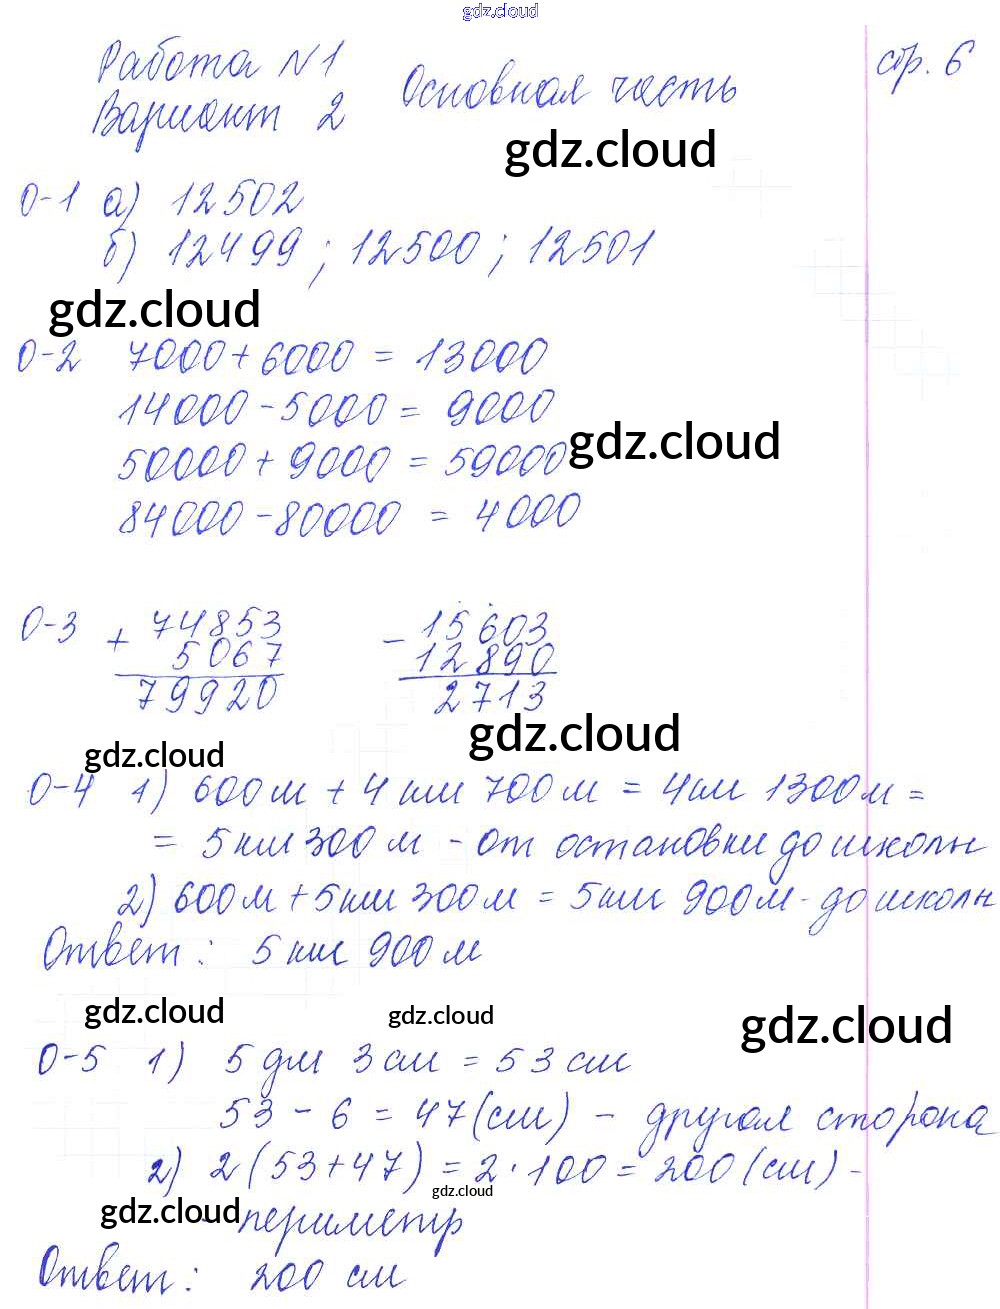 gdz.cloud
Работа №1
Вариант 2 Основная часть стр. 6
gdz.cloud
О-1 а) 12502
б) 12499 ; 12500 ; 12501
gdz.cloud
О-2 7000 + 6000 = 13000
14000 - 5000 = 9000
50000 + 9000 = 59000 gdz.cloud
84000 - 80000 = 4000
О-3 + 74853 - 15603
5067 12890
79920 2713
gdz.cloud gdz.cloud
О-4 1) 600 м + 4 км 700 м = 4 км 1300 м =
= 5 км 300 м - от остановки до школы
2) 600 м + 5 км 300 м = 5 км 900 м - до школы
Ответ: 5 км 900 м
gdz.cloud gdz.cloud gdz.cloud
О-5 1) 5 дм 3 см = 53 см
53 - 6 = 47 (см) - другая сторона
2) 2 (53 + 47) = 2 · 100 = 200 (см) -
gdz.cloud gdz.cloud
- периметр
Ответ: 200 см